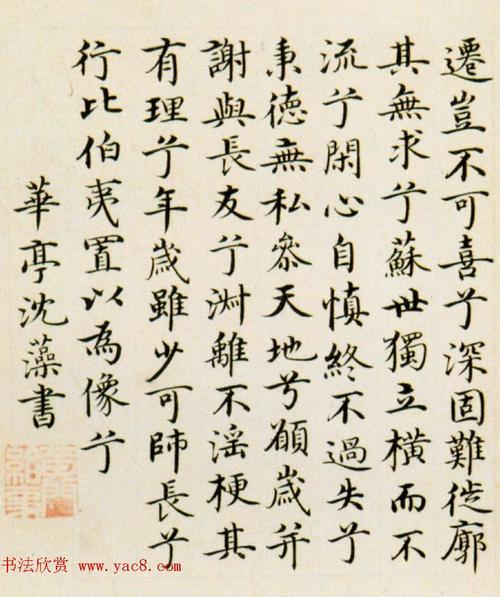 遷豈不可喜兮深固難徙廓
其無求兮蘇世獨立橫而不
流兮閑心自慎終不過失兮
秉德無私參天地兮願歲并
謝與長友兮淑離不淫梗其
有理兮年歲雖少可師長兮
行比伯夷置以為像兮
華亭沈藻書
书法欣赏 www.yac8.com